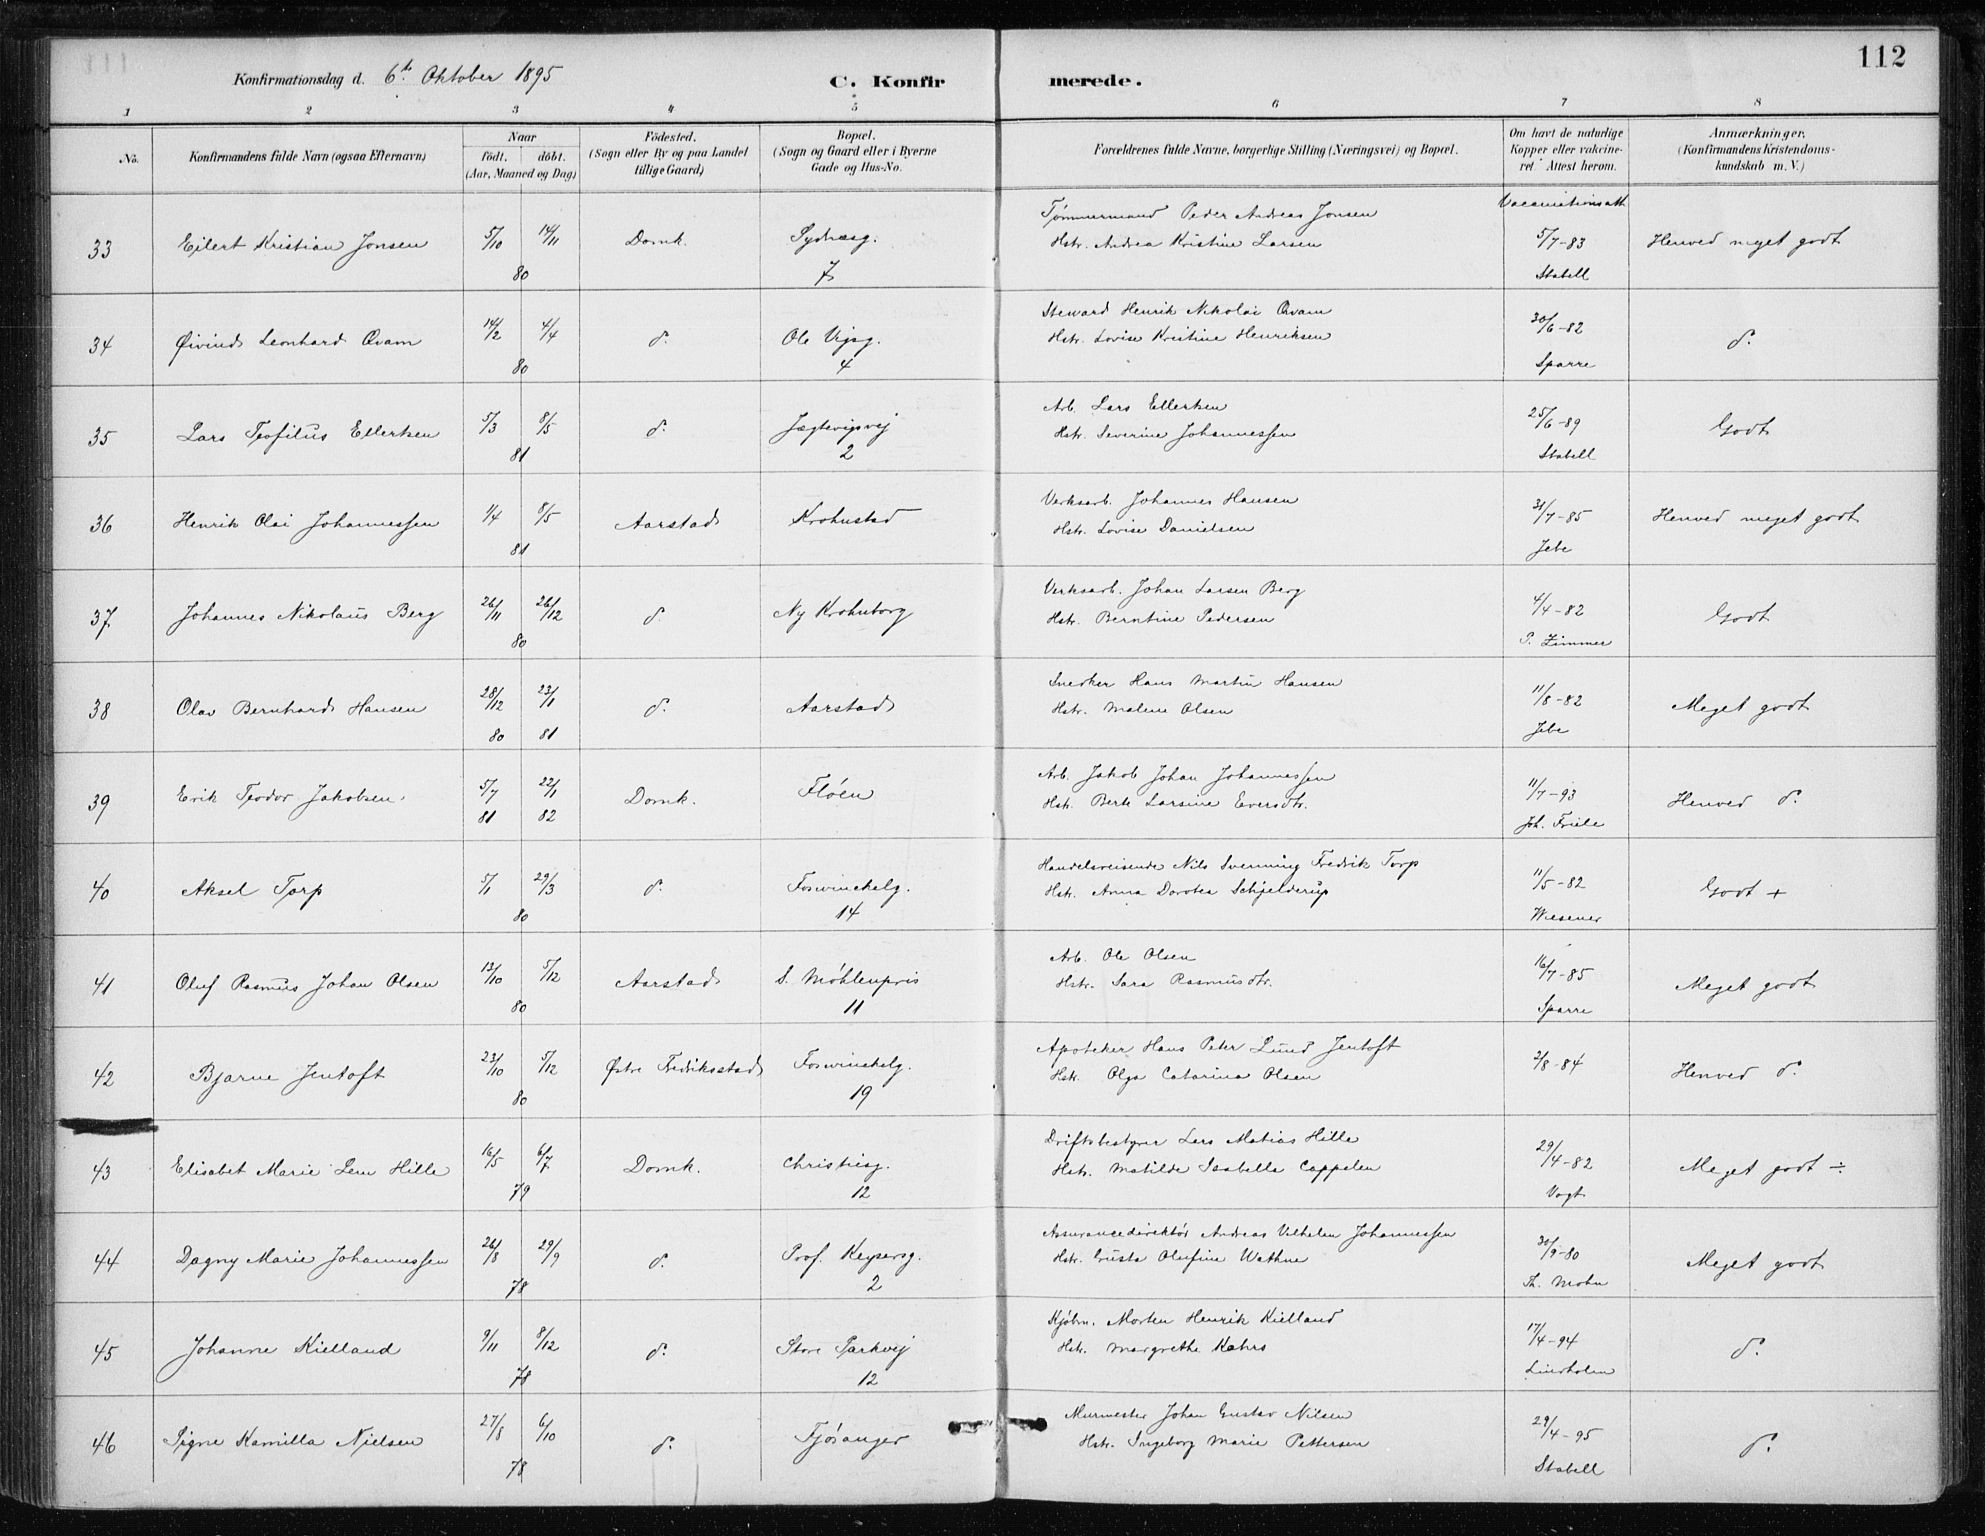 112
Konfirmationsdag d. 6te Oktober 1895
C. Konfirmerede.
1 2 3 4 5 6 7 8
No. | Konfirmandens fulde Navn (ogsaa Efternavn) | Naar født. døbt. (Aar, Maaned og Dag) | Fødested. (Sogn eller By og paa Landet tillige Gaard) | Bopæl. (Sogn og Gaard eller i Byerne Gade og Hus-No. | Forældrenes fulde Navne, borgerlige Stilling (Næringsvei) og Bopæl. | Om havt de naturlige Kopper eller vakcineret Attest herom. | Anmærkninger. (Konfirmandens Kristendomskundskab m. V.)
33 Eilert Kristian Jonsen 5/10 14/11 80 Domk. Sydnæsg. 7 Tømmermand Peder Andreas Jonsen Hstr. Andrea Kristine Larsen Vaccinationsatt 5/7-83 Stabell Henved meget godt
34 Øivind Leonhard Qvam 14/2 4/4 80 d. Ole Vigsg. 4 Steward Henrik Nikolai Qvam Hstr. Lovise Kristine Henriksen 30/6-82 Sparre d.
35 Lars Teofilus Ellertsen 5/3 8/5 81 d. Jægtevigsvej 2 Arb. Lars Ellertsen Hstr. Severine Johannessen 25/6-89 Stabell Godt
36 Henrik Olai Johannessen 1/4 8/5 81 Aarstad Krohnstad Verksarb. Johannes Hansen Hstr. Lovise Danielsen 31/7-85 Jebe Henved meget godt
37 Johannes Nikolaus Berg 26/11 26/12 80 d. Ny Krohnborg Verksarb. Johan Larsen Berg Hstr. Berntine Pedersen 4/4-82 P. Zimmer Godt
38 Olav Bernhard Hansen 28/12 80 23/1 81 d. Aarstad Snedker Hans Martin Hansen Hstr. Malene Olsen 11/8-82 Jebe Meget godt
39 Erik Teodor Jakobsen 5/7 81 22/1 82 Domk. Fløen Arb. Jakob Johan Johannessen Hstr. Berte Larsine Eversdtr. 11/7-93 Joh. Friele Henved d.
40 Aksel Torp 5/1 29/3 80 d. Foswinckelg. 14 Handelsreisende Nils Svenning Fredrik Torp Hstr. Anna Dorotea Schjelderup 11/5-82 Wiesener Godt +
41 Oluf Rasmus Johan Olsen 13/10 5/12 80 Aarstad S. Møhlenpris 11 Arb. Ole Olsen Hstr. Sara Rasmusdtr. 16/7-85 Sparre Meget godt
42 Bjarne Jentoft 23/10 5/12 80 Østre Fredriksstad Foswinckelg. 19 Apoteker Hans Peter Lund Jentoft Hstr. Olga Catarina Olsen 2/8-84 Henved d.
43 Elisabet Marie Lem Hille 16/5 6/7 79 Domk. Christiesg. 12 Driftsbestyrer Lars Matias Hille Hstr. Matilde Isabella Cappelen 29/4-82 Vogt Meget godt ÷
44 Dagny Marie Johannessen 26/8 29/9 78 d. Prof. Keysersg. 2 Assurancedirektør Andreas Vilhelm Johannessen Hstr. Gusta Olufine Wathne 30/9-80 Th. Mohn Meget godt
45 Johanne Kielland 9/11 8/12 78 d. Store Parkvej 12 Kjøbm. Morten Henrik Kielland Hstr. Margrethe Kahrs 17/4-94 Lindholm d.
46 Signe Kamilla Nielsen 27/8 6/10 78 d. Fjøsanger Murmester Johan Gustav Nilsen Hstr. Ingeborg Marie Pettersen 29/4-95 Stabell d.